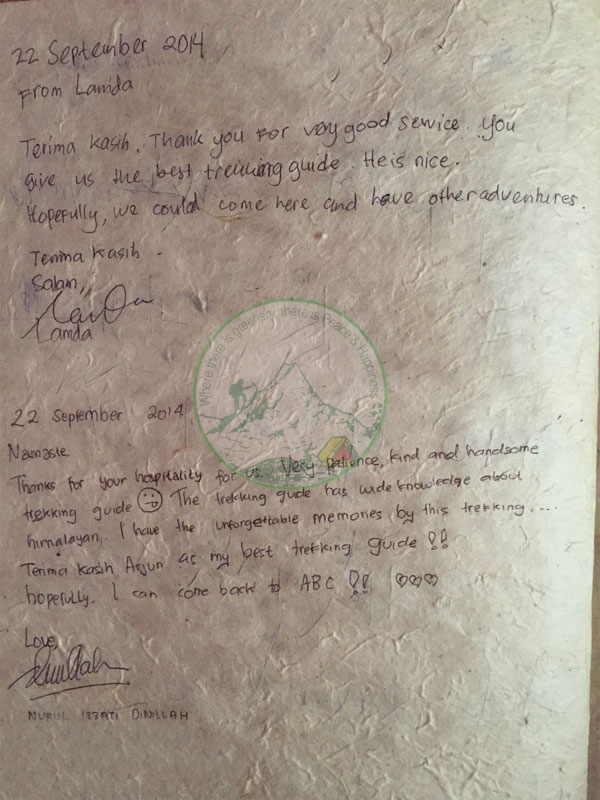 22 September 2014
From Lamda
Terima kasih. Thank you for very good service. You
give us the best trekking guide. He is nice.
Hopefully, we could come here and have other adventures.
Terima kasih.
Salam,
Lamda
Where there is greenery, there is Peace & Happiness
22 September 2014
Namaste.
Thanks for your hospitality for us. Very patience, kind and handsome
trekking guide The trekking guide has wide knowledge about
himalayan. I have the unforgettable memories by this trekking....
Terima kasih Arjun as my best trekking guide!!
hopefully. I can come back to ABC !! ♡♡♡
Love,
NURUL IZZATI DINILLAH